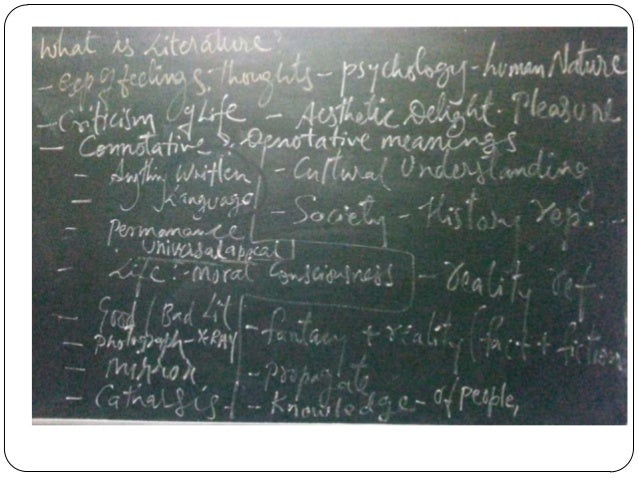 What is Literature?
- exp of feelings. Thoughts - psychology - human Nature
- Criticism of Life - Aesthetic Delight. Pleasure
- Connotative & Denotative meanings
- Anythin written - Cultural Understanding
- Language - Society - History rep....
- Permanance
Universal appeal
- Life :- Moral Consciousness - reality ref.
- Good / Bad Lit
- fantasy + reality (fact + fiction
- photograph - X-RAY
- Mirror - propagate
- Catharsis. - Knowledge - of people,